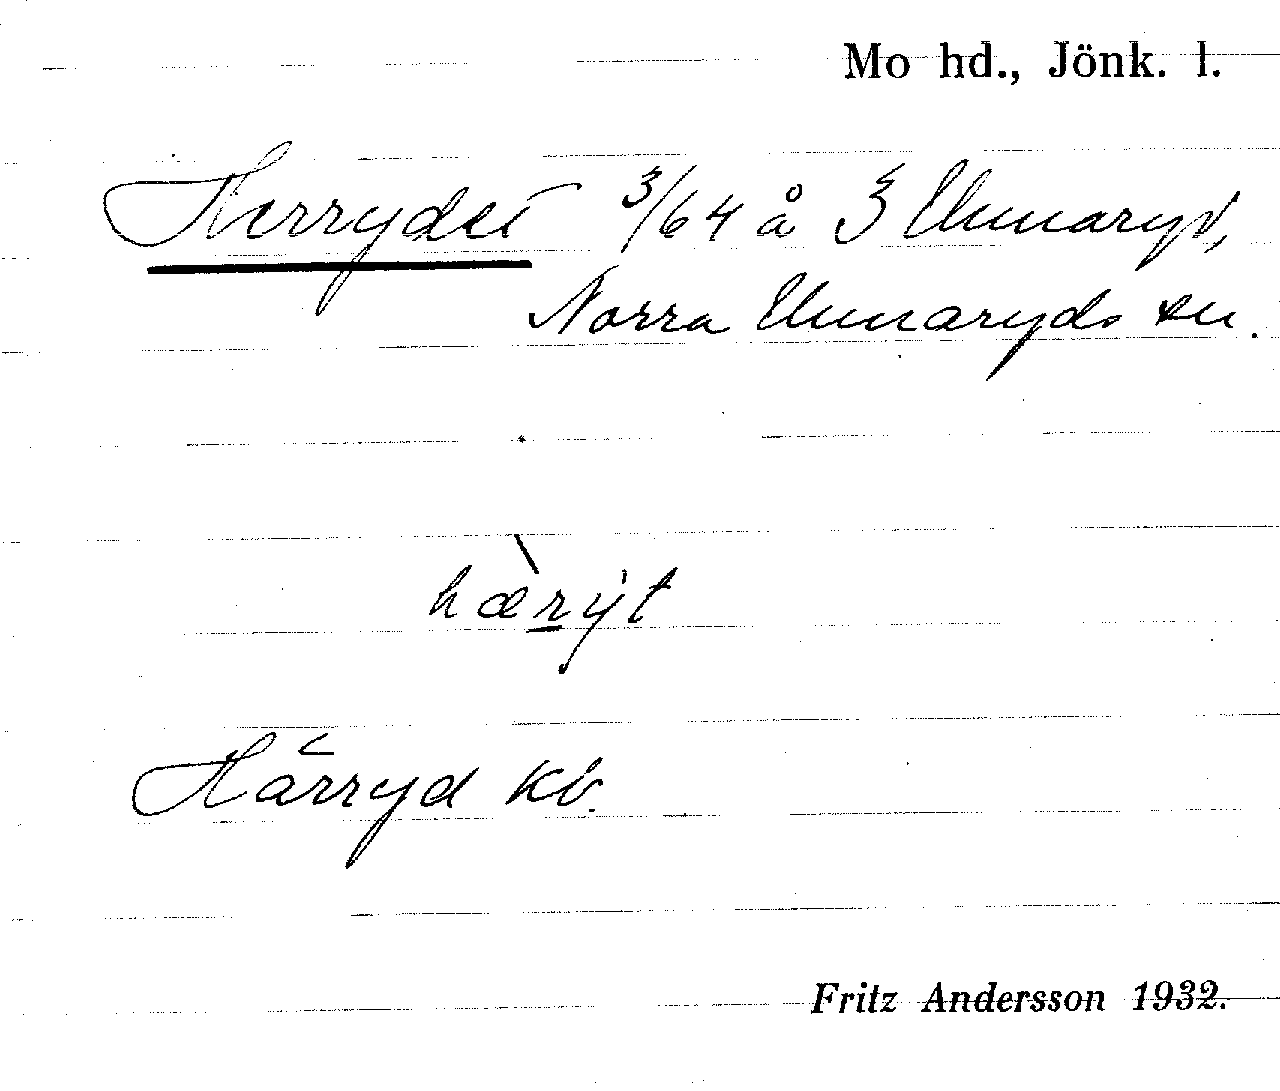 Mo hd., Jönk. l.
Herrydet 3/64 å 3 Unnaryd,
Norra Unnaryds sn.
hær̲ÿt
Härryd kb.
Fritz Andersson 1932.